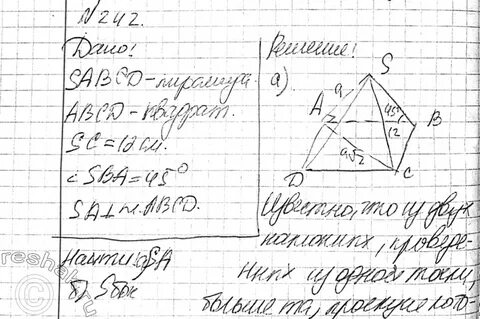 N242.
Дано:
SABCD-пирамида.
ABCD-квадрат.
SC=12см.
∠SBA=45°
SA⊥пл.ABCD.
Найти: а) SA
б) Sбок
Решение:
а)
S
a
A
45°
B
12
a√2
D
C
Известно, что из двух
наклонных, проведе-
нных из одной точки,
больше та, проекция кото-
reshak.ru